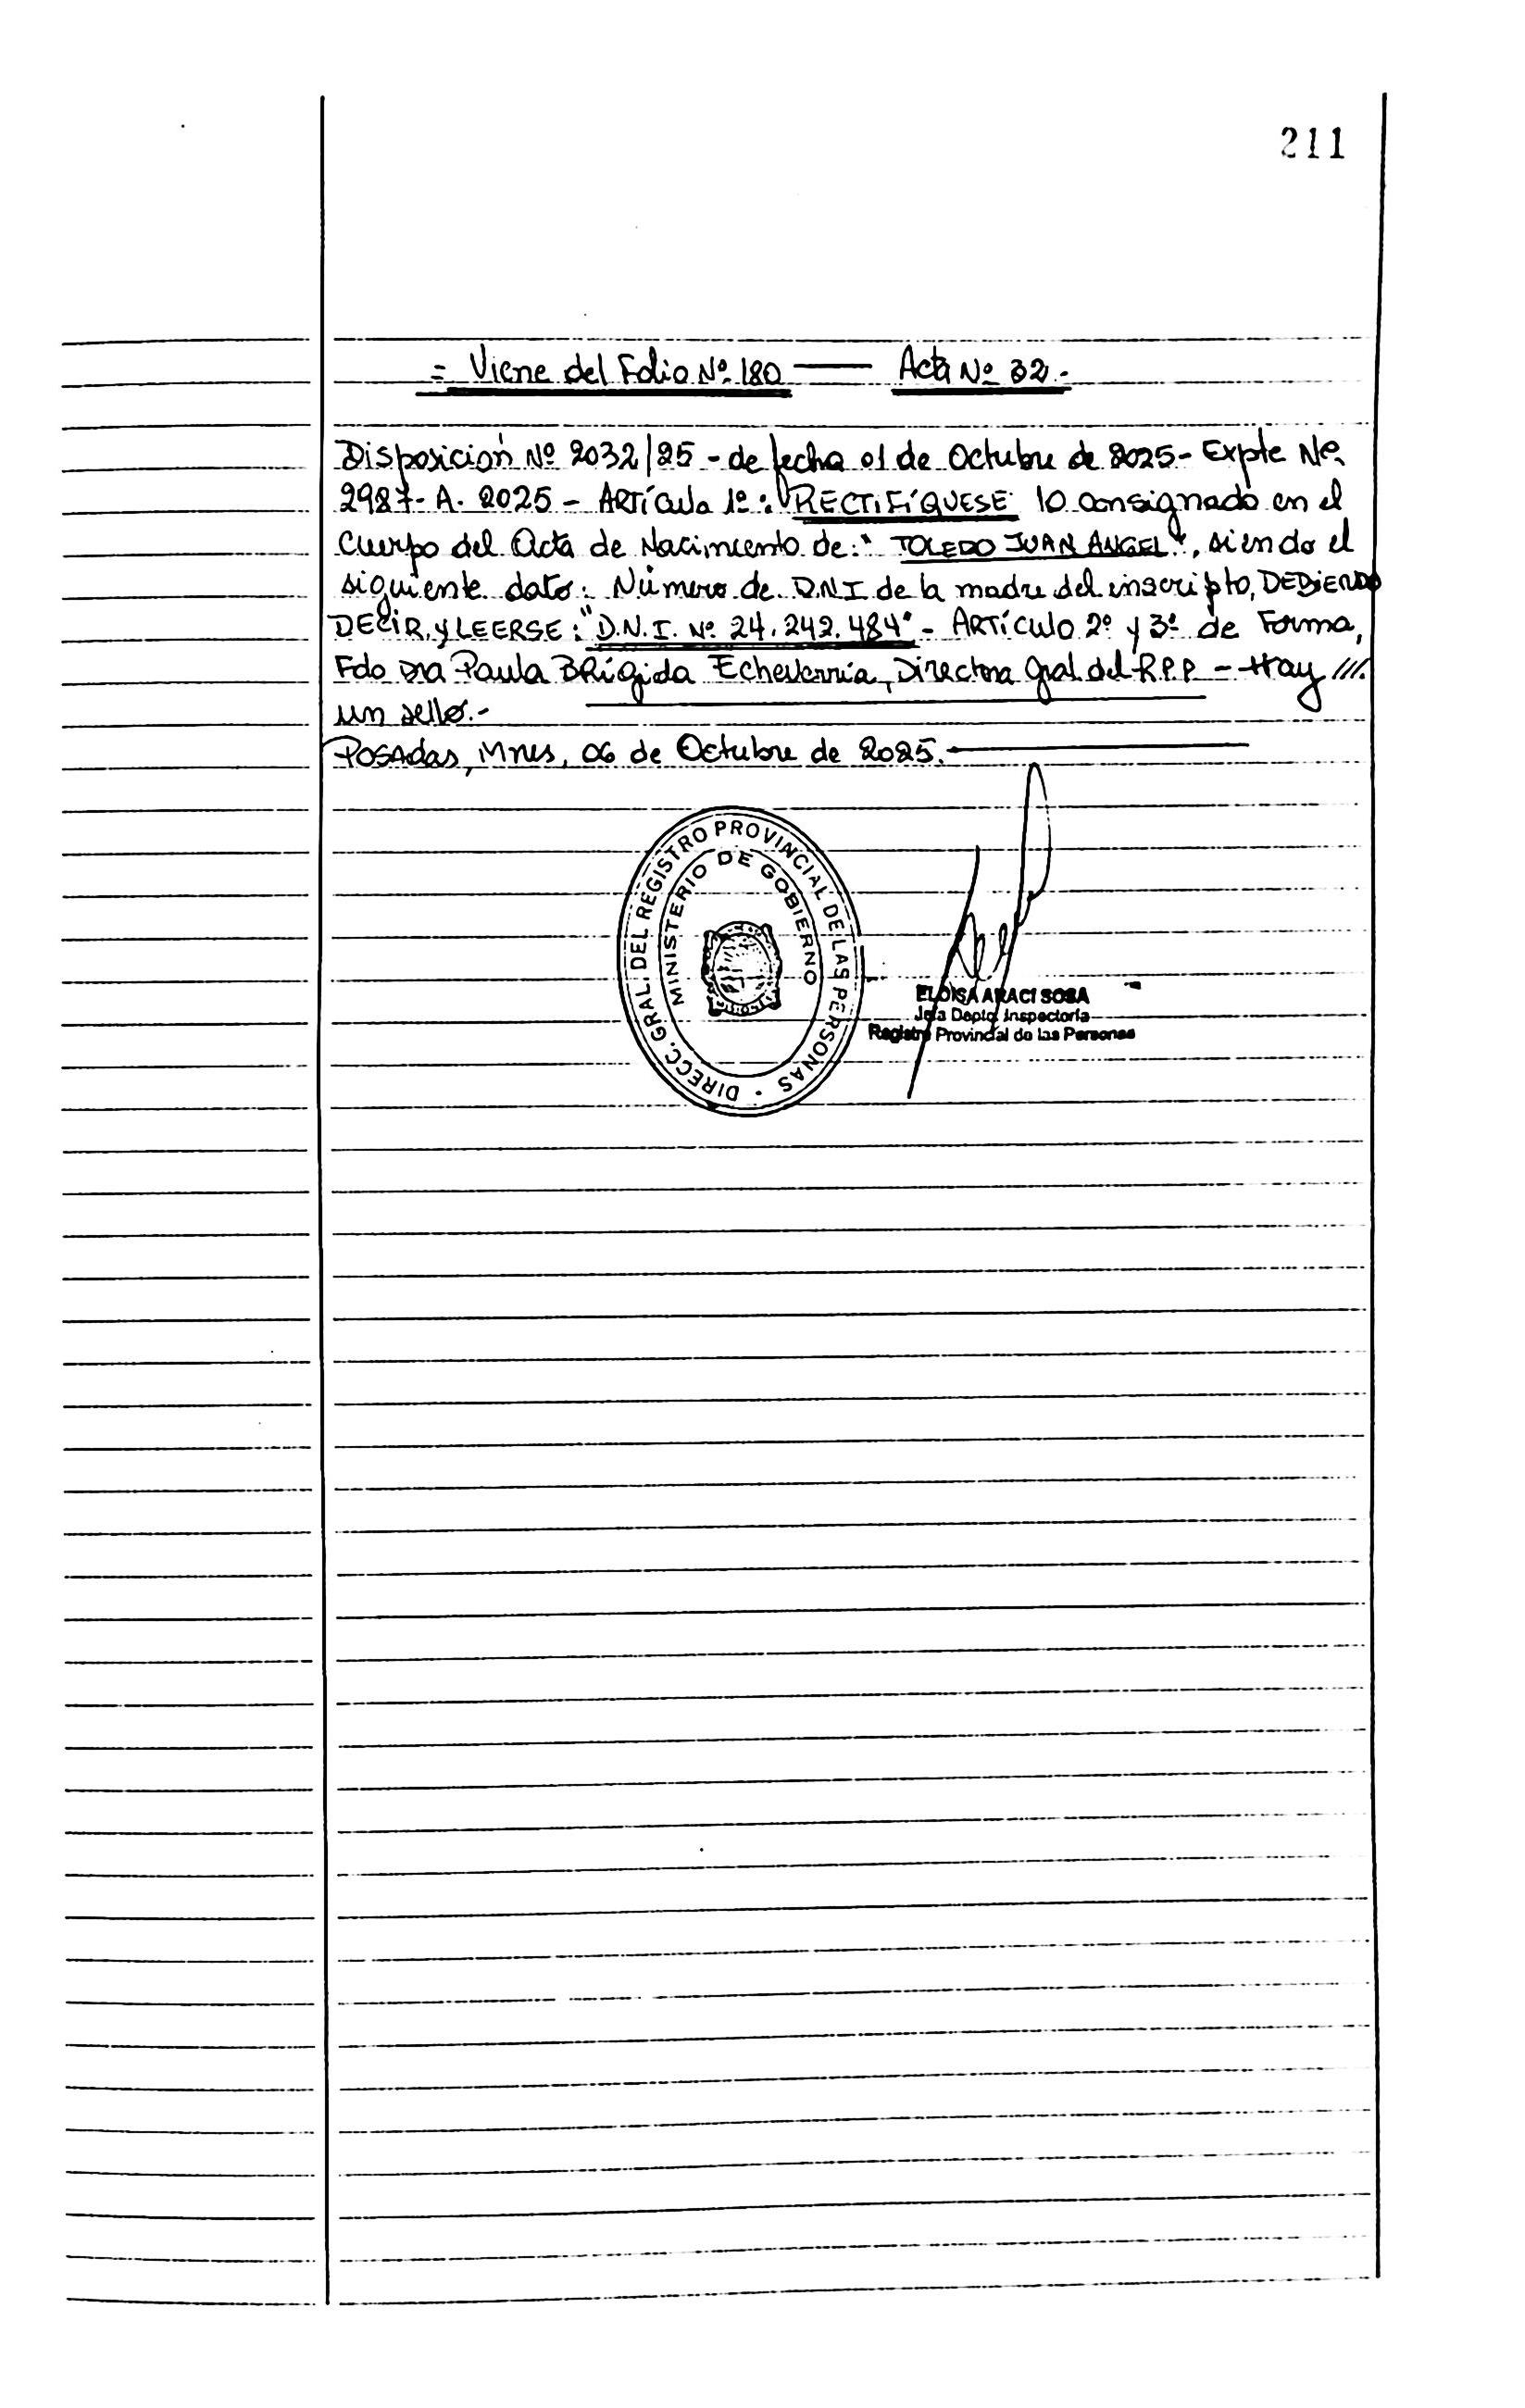 211
= Viene del Folio Nº 180 —— Acta Nº 32.-
Disposición Nº 2032/25 - de fecha 01 de Octubre de 2025 - Expte Nº
2987- A. 2025 - ARTÍCulo 1º: RECTIFÍQUESE lo consignado en el
Cuerpo del Acta de Nacimiento de: "TOLEDO JUAN ANGEL", siendo el
siguiente dato: Número de D.N.I de la madre del inscripto, DEBIENDO
DECIR y LEERSE: "D.N.I. Nº 24.242.484" - ARTÍCulo 2º y 3º de Forma,
Fdo Dra Paula BRígida Echeverría, Directora Gral del R.P.P - Hay ///.
un sello.-
POSAdas, Mnes, 06 de Octubre de 2025.
DIRECC. GRAL. DEL REGISTRO PROVINCIAL DE LAS PERSONAS
MINISTERIO DE GOBIERNO
ELOISA ARACI SOSA
Jefa Depto. Inspectoría
Registro Provincial de las Personas